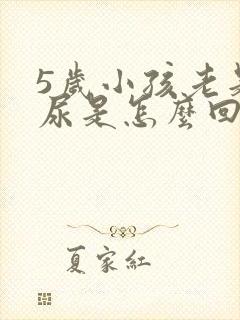 5歲小孩老是
尿是怎麼回
夏家紅